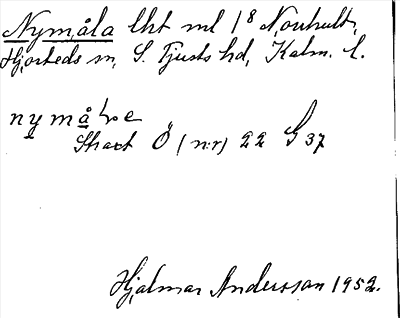 Nymåla lht ml 1⁸ Norrhult,
Hjorteds sn, S. Tjusts hd, Kalm. l.
nymå
Skaxt Ö (n:r) 22 G 37
Hjalmar Andersson 1952.